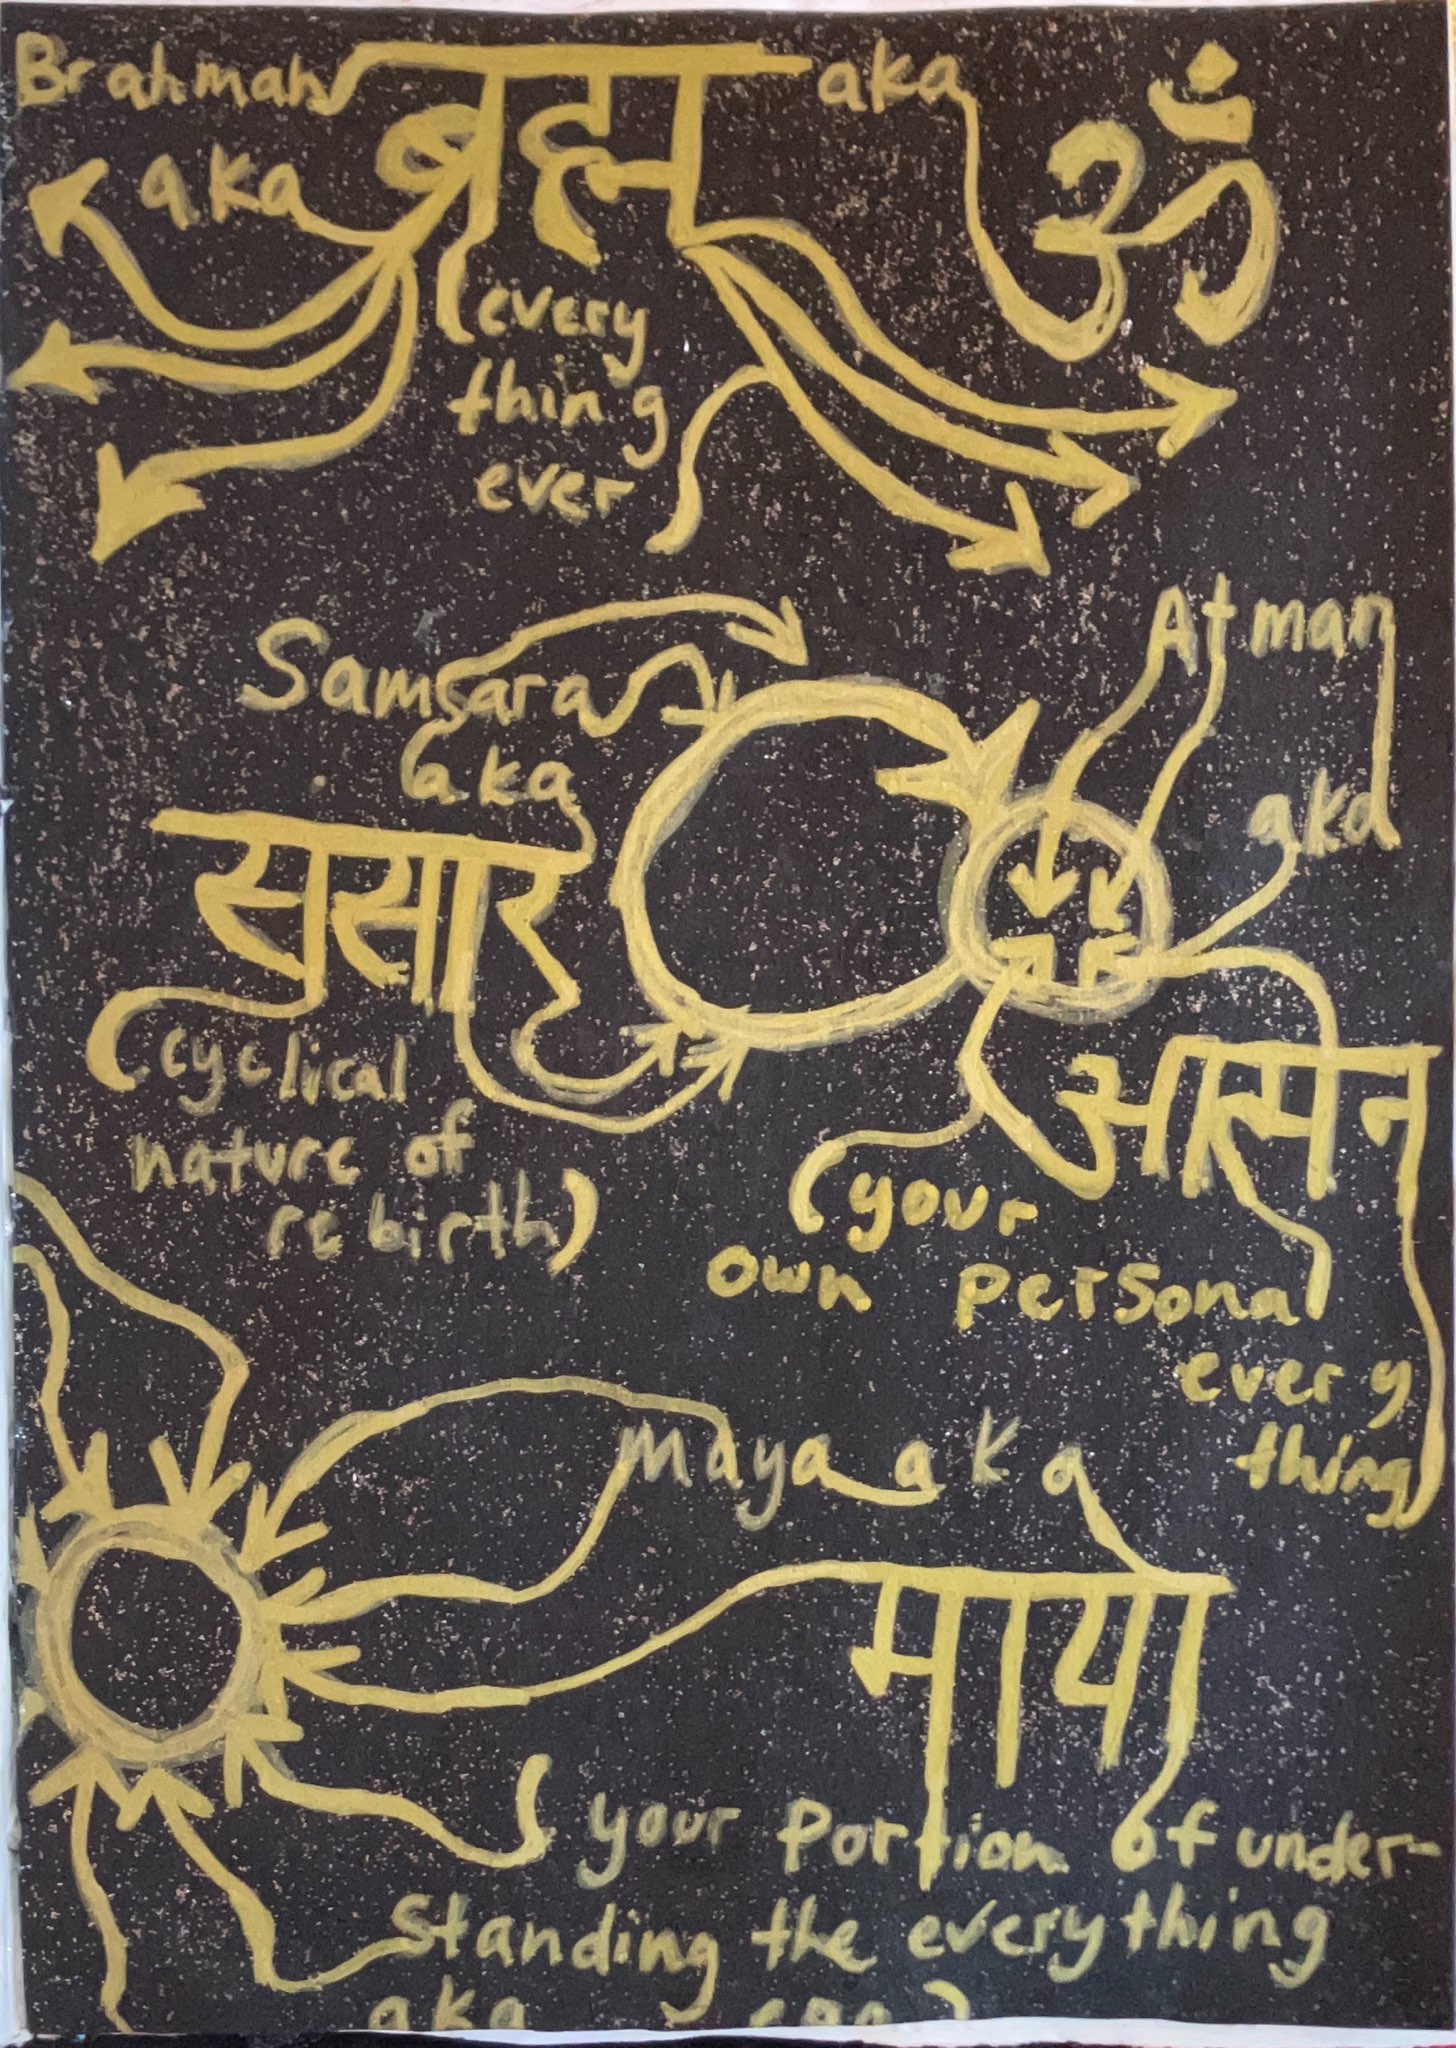 Brahman ब्रह्म aka ॐ
aka
(every
thing
ever)
Samsara
aka
Atman
aka
संसार
(cyclical
nature of
rebirth)
आत्मन
(your
own personal
every
thing)
Maya aka
माया
(your portion of under-
standing the everything
aka